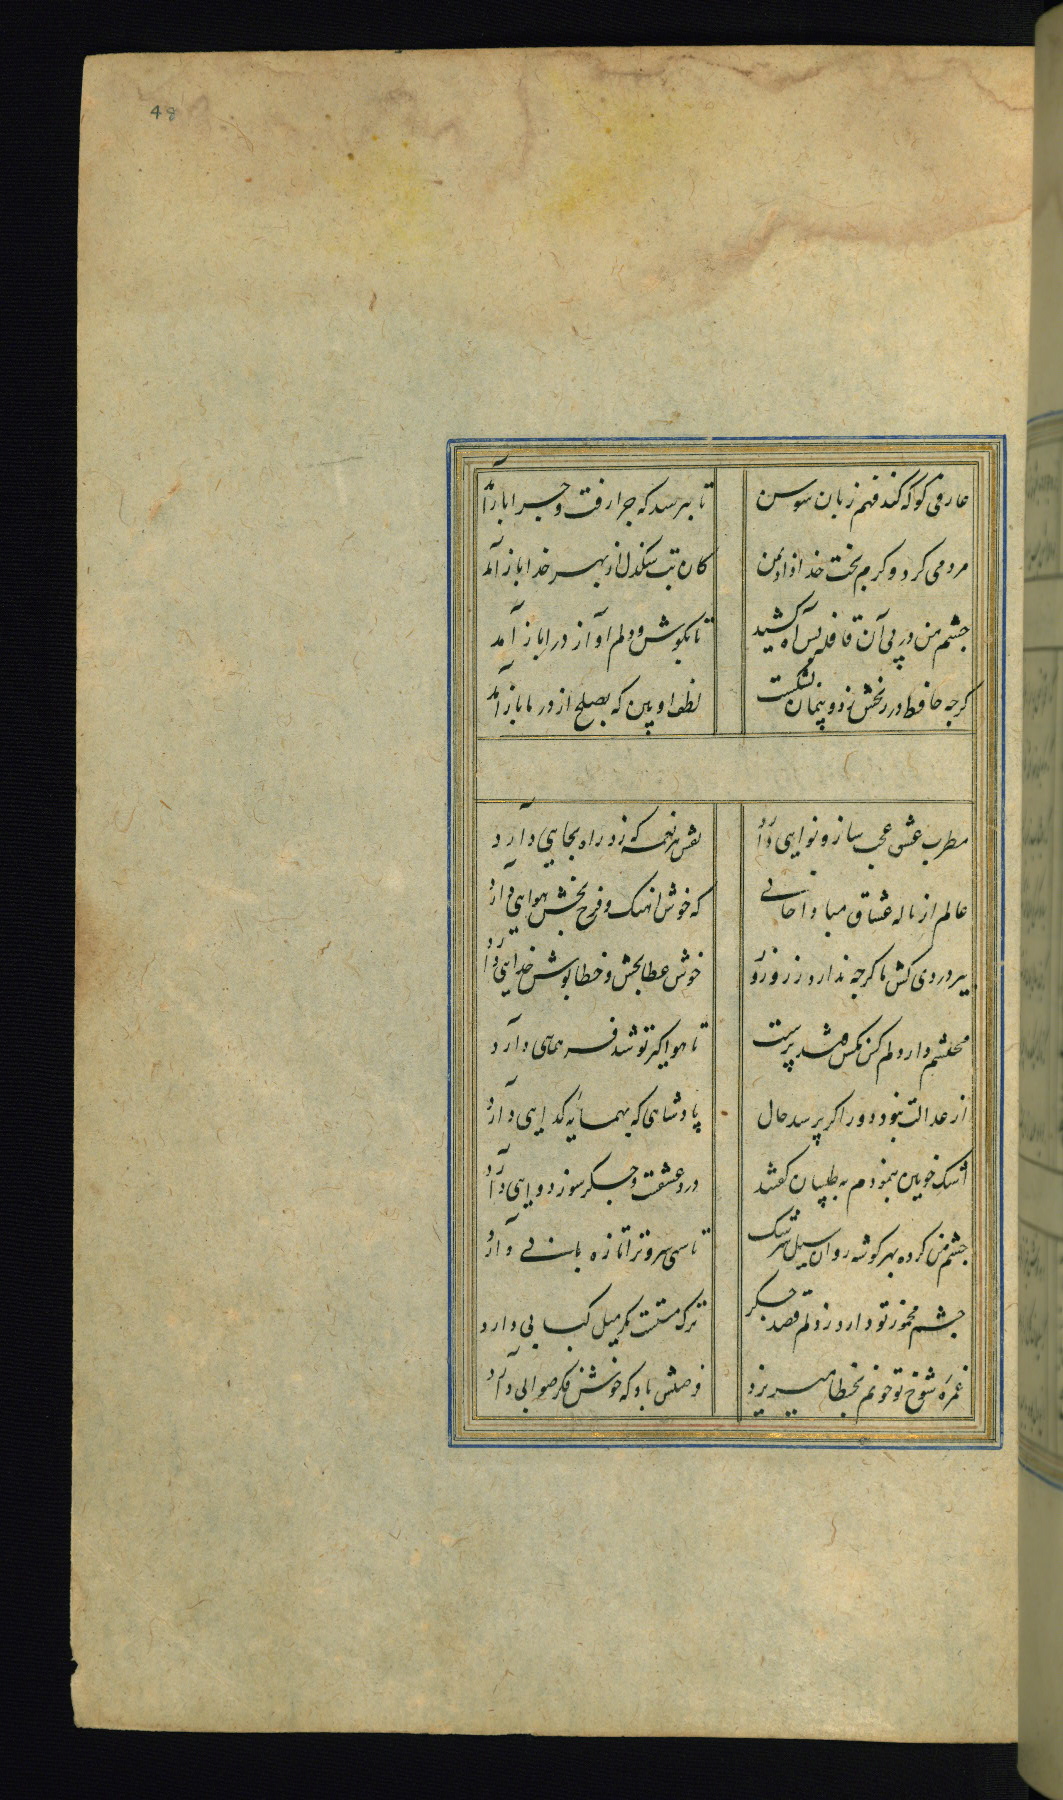 48
عارفی کو که کند فهم زبان سوسن تا بپرسد که چرا رفت و چرا باز آمد
مردمی کرد و کرم بخت خداداد بمن کان بت سنگدل از بهر خدا باز آمد
چشم من در پی آن قافله بس آه کشید تا بگوش دلم آواز درا باز آمد
گرچه حافظ در رنجش زد و پیمان بشکست لطف او بین که بصلح از در ما باز آمد
مطرب عشق عجب ساز و نوایی دارد نقش هر نغمه که زد راه بجایی دارد
عالم از ناله عشاق مبادا خالی که خوش آهنگ و فرح بخش هوایی دارد
پیر دردی کش ما گرچه ندارد زر و زور خوش عطابخش و خطاپوش خدایی دارد
محتشم دار دلم کین مگس قند پرست تا هواگیر تو شد فر همایی دارد
از عدالت نبود دور اگر پرسد حال پادشاهی که بهمسایه گدایی دارد
اشک خونین بنمودم به طبیبان گفتند درد عشقست و جگرسوز دوایی دارد
چشم من کرده بهر گوشه روان سیل سرشک تا سهی سرو ترا تازه دارد
چشم مخمور تو دارد ز دلم قصد جگر ترک مستست مگر میل کبابی دارد
غمزه شوخ تو خونم بخطا میریزد فرصتش باد که خوش فکر صوابی دارد